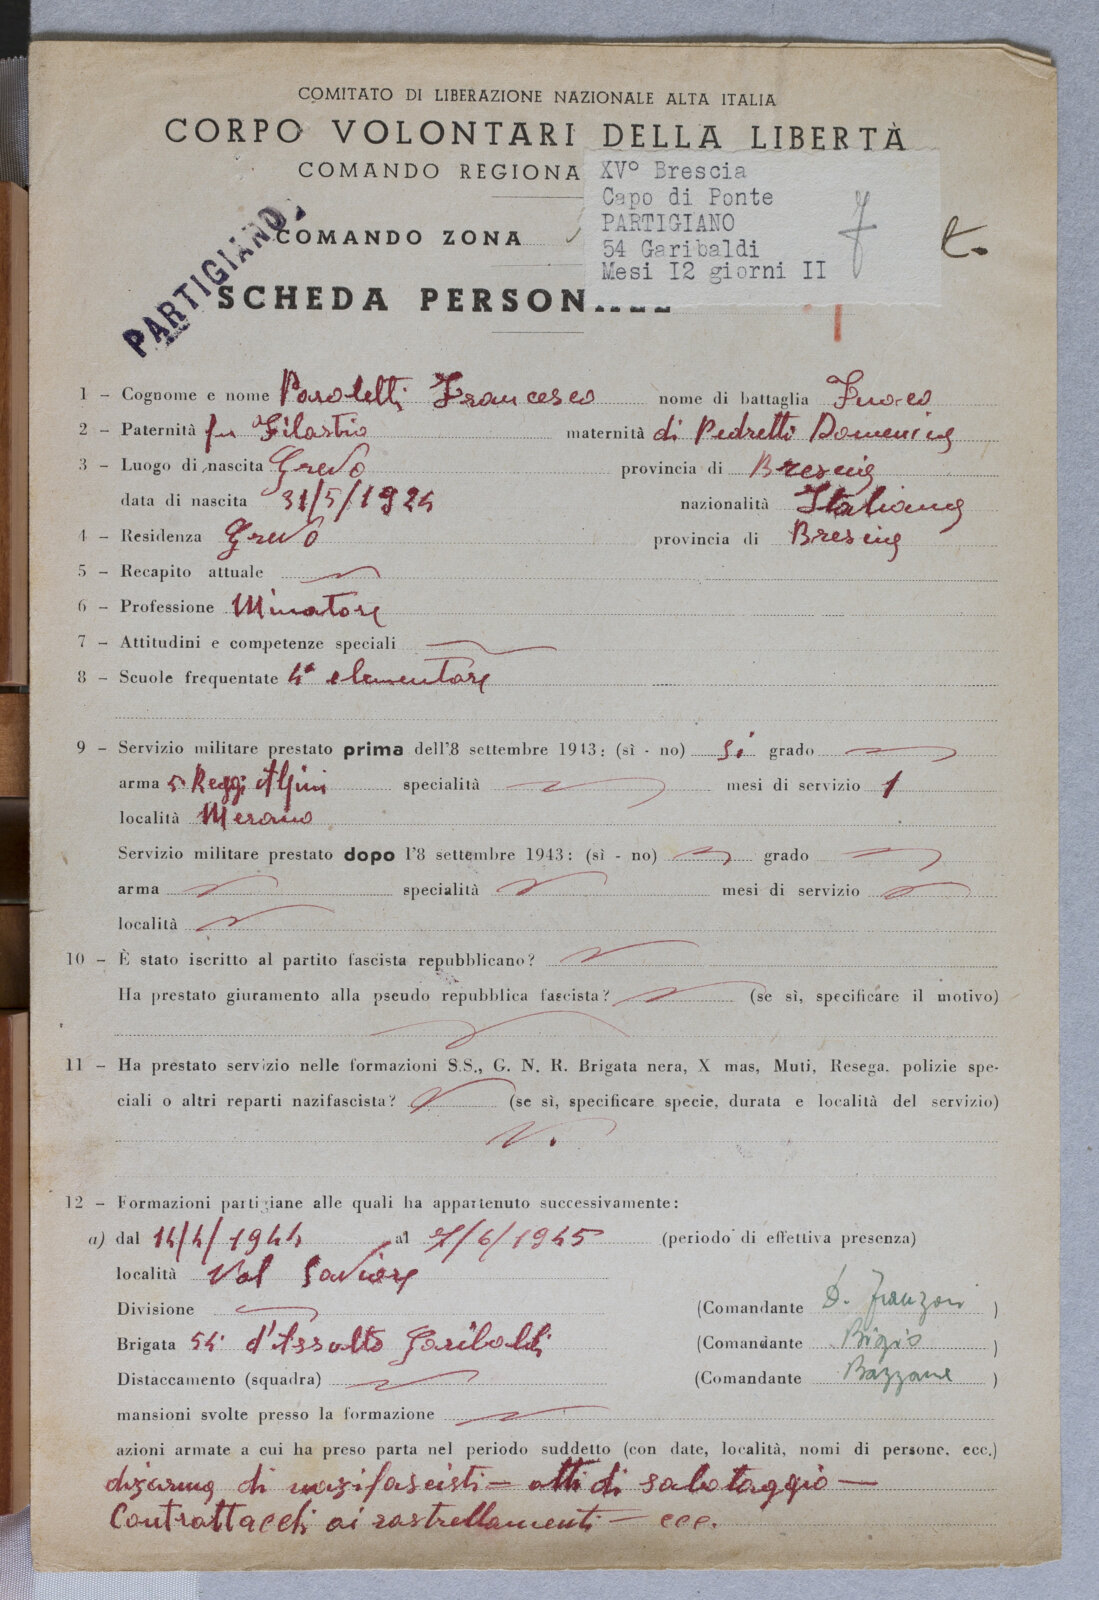 COMITATO DI LIBERAZIONE NAZIONALE ALTA ITALIA
CORPO VOLONTARI DELLA LIBERTÀ
COMANDO REGIONA
XV° Brescia
Capo di Ponte
PARTIGIANO
54 Garibaldi
Mesi I2 giorni II
7
t.
PARTIGIANO
COMANDO ZONA
SCHEDA PERSON
1 – Cognome e nome Paroletti Francesco nome di battaglia Fuoco
2 – Paternità fu Filastio maternità di Pedretti Domenica
3 – Luogo di nascita Grevo provincia di Brescia
data di nascita 31/5/1924 nazionalità Italiana
4 – Residenza Grevo provincia di Brescia
5 – Recapito attuale
6 – Professione Minatore
7 – Attitudini e competenze speciali
8 – Scuole frequentate 4ª elementare
9 – Servizio militare prestato prima dell'8 settembre 1943: (sì - no) si grado
arma 5 Regg: Alpini specialità mesi di servizio 1
località Merano
Servizio militare prestato dopo l'8 settembre 1943: (sì - no) grado
arma specialità mesi di servizio
località
10 – È stato iscritto al partito fascista repubblicano?
Ha prestato giuramento alla pseudo repubblica fascista? (se sì, specificare il motivo)
11 – Ha prestato servizio nelle formazioni S.S., G. N. R. Brigata nera, X mas, Muti, Resega, polizie spe-
ciali o altri reparti nazifascista? (se sì, specificare specie, durata e località del servizio)
12 – Formazioni partigiane alle quali ha appartenuto successivamente:
a) dal 14/4/1944 al 7/6/1945 (periodo di effettiva presenza)
località Val Saviore
Divisione (Comandante D. Franzoni )
Brigata 54 d'Assalto Garibaldi (Comandante Bigio )
Distaccamento (squadra) (Comandante Bazzane )
mansioni svolte presso la formazione
azioni armate a cui ha preso parta nel periodo suddetto (con date, località, nomi di persone, ecc.)
disarmo di nazifascisti – atti di sabotaggio –
Contrattacchi ai rastrellamenti – ecc.